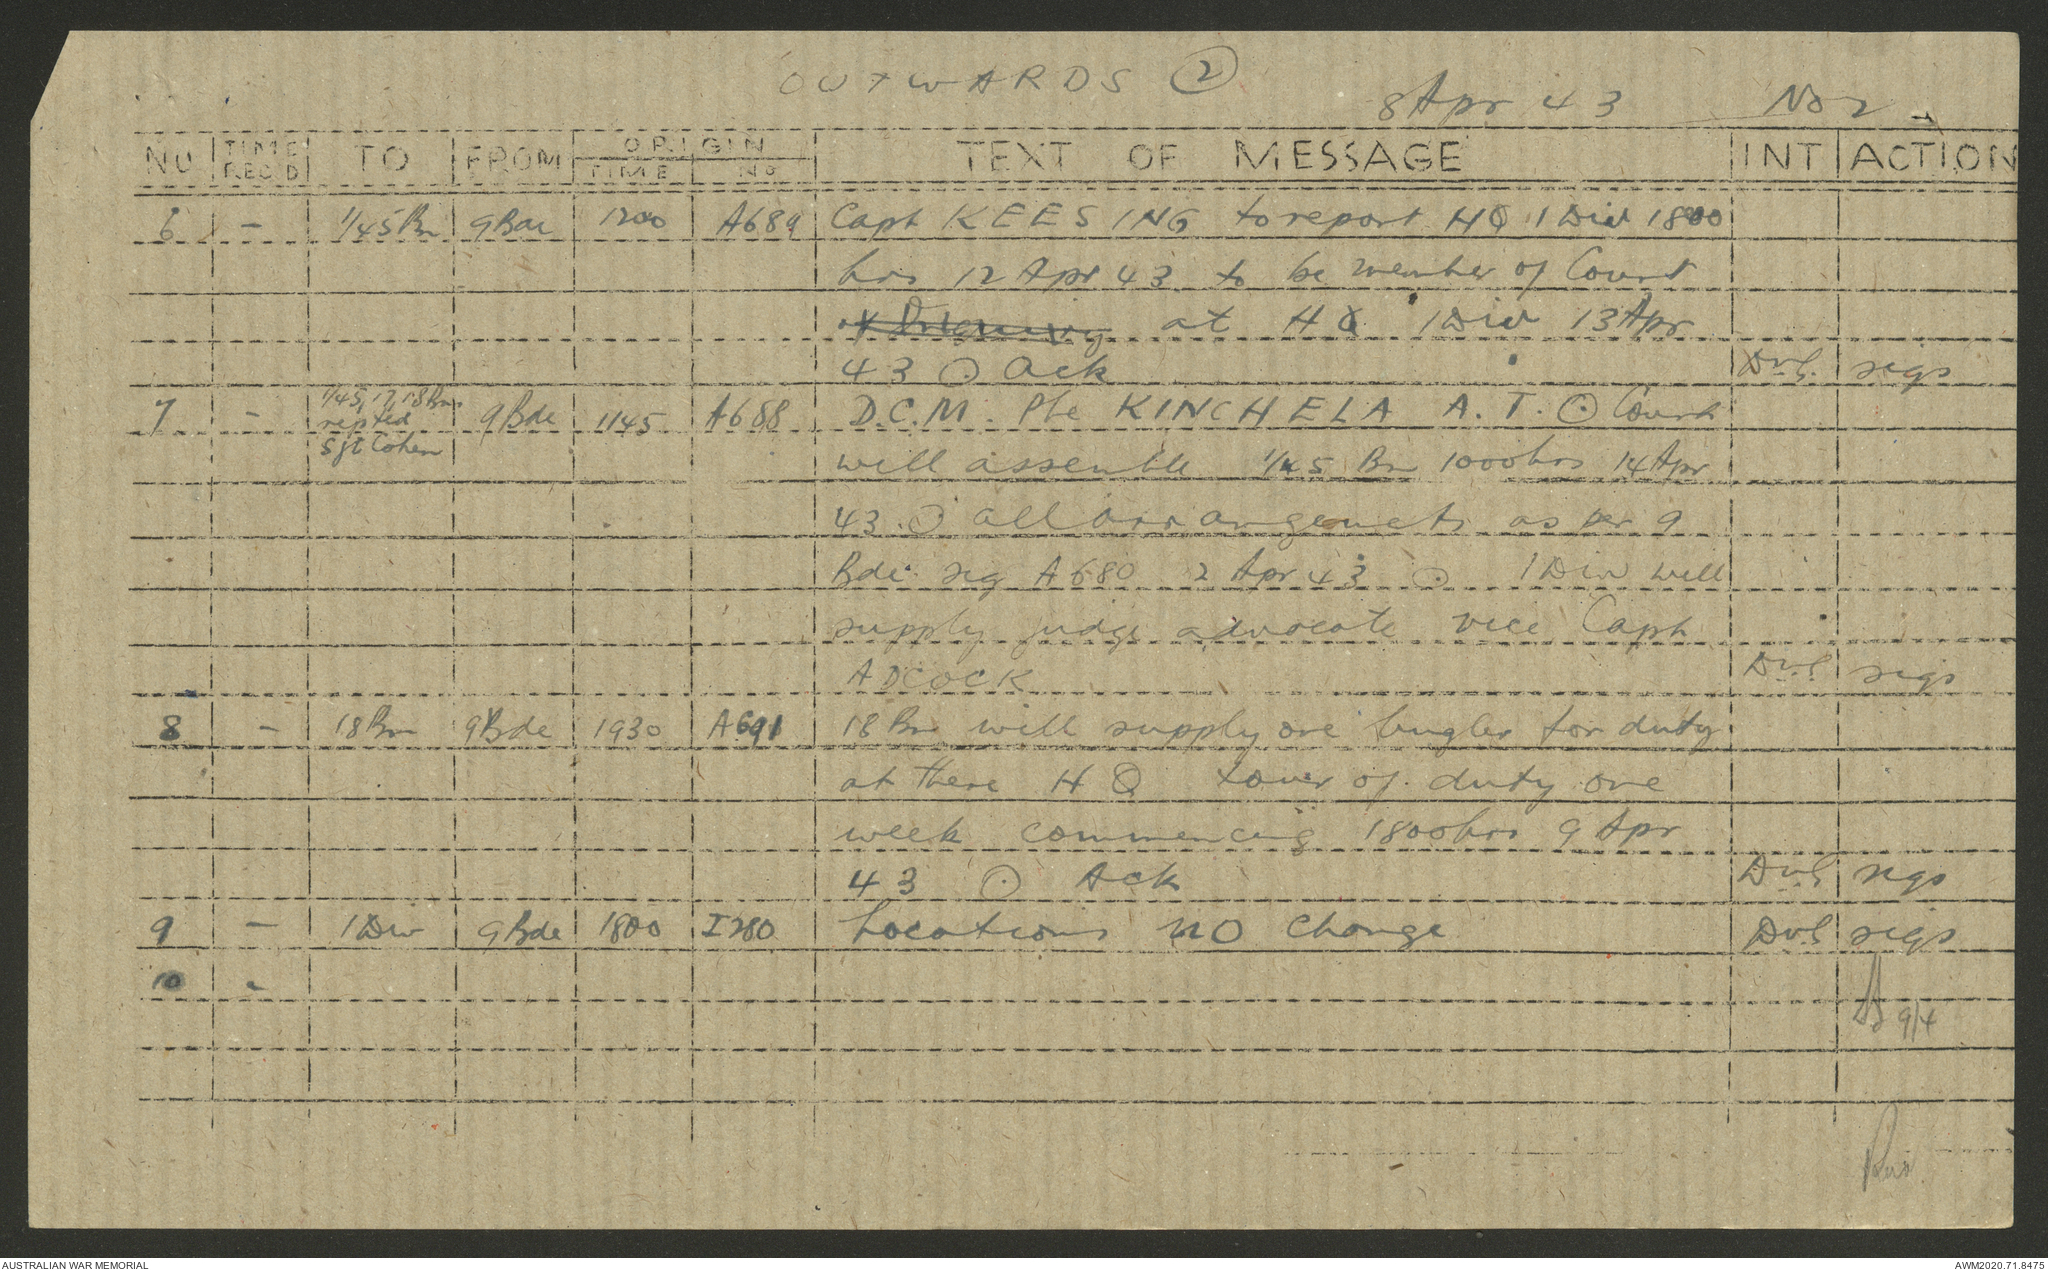 OUTWARDS 2
8 Apr 43 No 2
NO TIME REC'D TO FROM ORIGIN TIME No TEXT OF MESSAGE INT ACTION
6 - 1/45 Bn 9 Bde 1200 A689 Capt KEESING to report HQ 1 Div 1800
hrs 12 Apr 43 to be member of Court
of Inquiry at HQ 1 Div 13 Apr
43 ⊙ Ack DvG. sigs
7 - 1/45, 17, 18 Bns repted Sjt Cohen 9 Bde 1145 A688 D.C.M. Pte KINCHELA A.T. ⊙ Court
will assemble 1/45 Bn 1000hrs 14 Apr
43 ⊙ all arrangements as per 9
Bde sig A680 2 Apr 43 ⊙ 1 Div will
supply judge advocate vice Capt
ADCOCK DvG sigs
8 - 18 Bn 9 Bde 1930 A691 18 Bn will supply one bugler for duty
at there HQ tour of duty one
week commencing 1800hrs 9 Apr
43 ⊙ Ack DvG sigs
9 - 1 Div 9 Bde 1800 I280 Locations no change DvG sigs
10 -
9/4
AUSTRALIAN WAR MEMORIAL AWM2020.71.8475